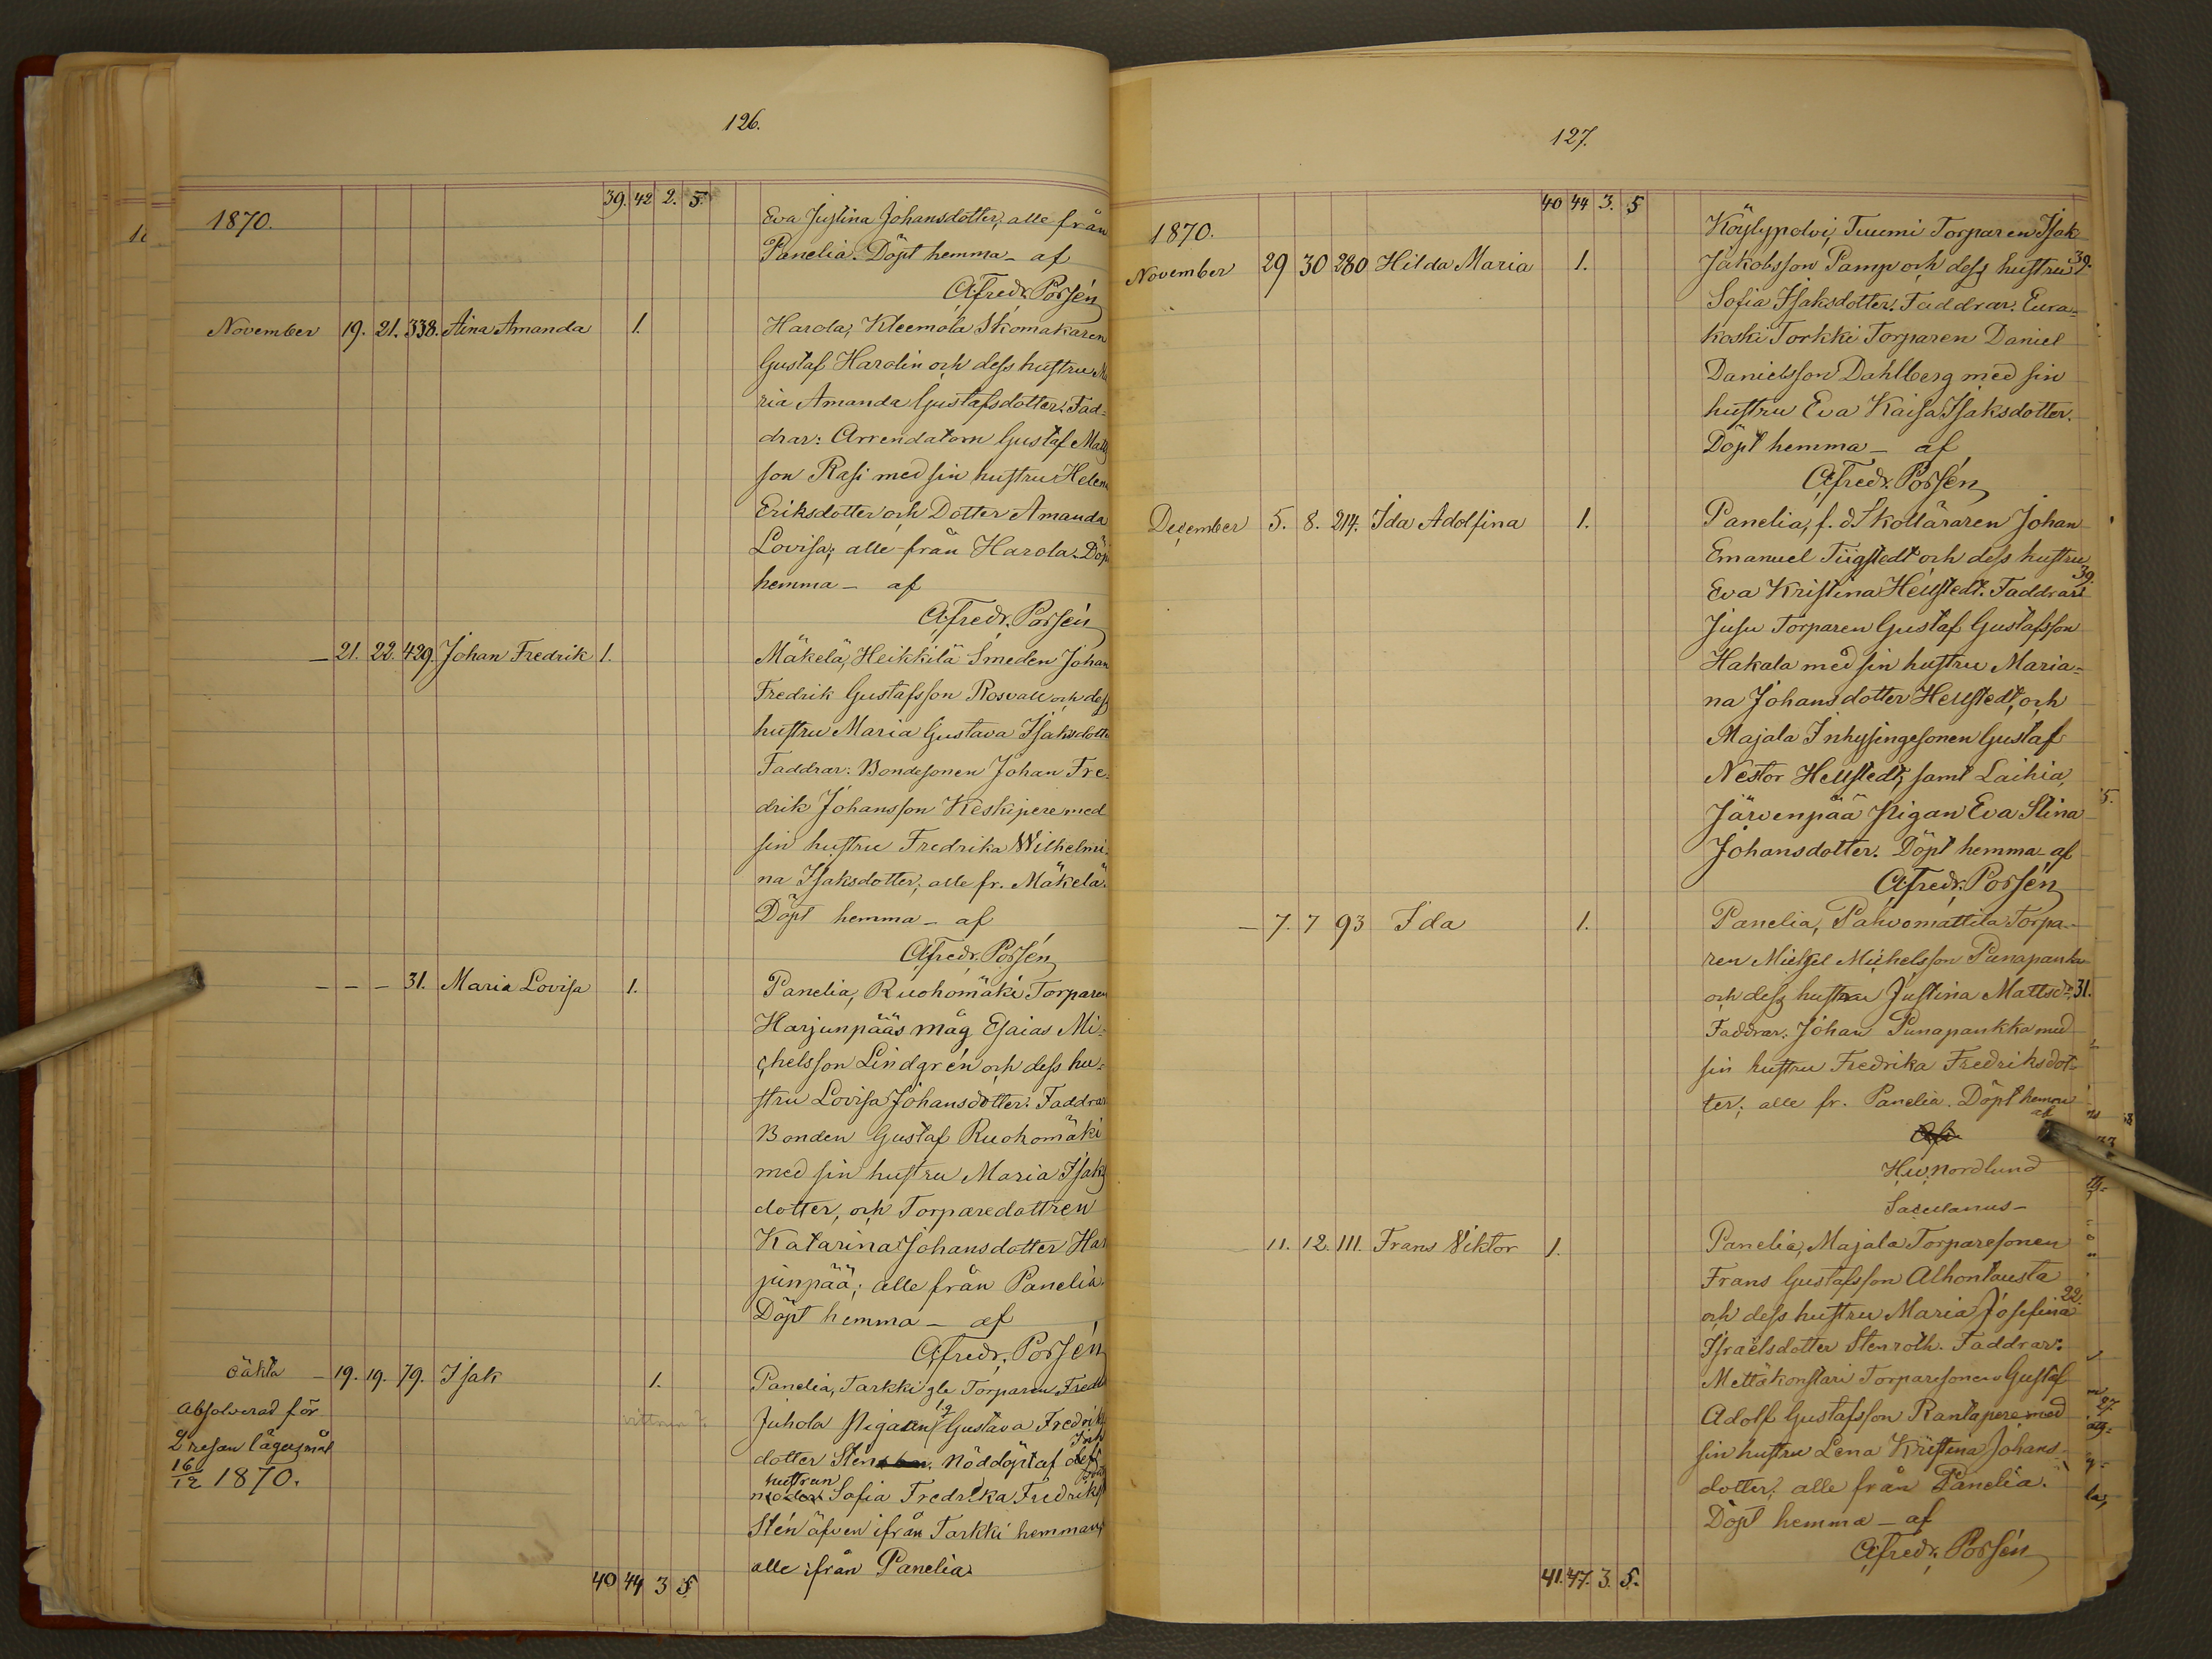 126.
39. 42 2. 5.
1870.
Eva Justina Johansdotter; alle från
Panelia. Döpt hemma – af
A Fredr. Porsén
November 19. 21. 338. Aina Amanda 1. Harola, Kleemola Skomakaren
Gustaf Harolin och dess hustru Ma
ria Amanda Gustafsdotter. Fad-
drar: Arrendatorn Gustaf Matts
son Rasi med sin hustru Helena
Eriksdotter och Dotter Amanda
Lovisa; alle från Harola. Döpt
hemma – af
A Fredr. Porsén
– 21. 22. 429. Johan Fredrik 1. Mäkelä, Heikkilä Smeden Johan
Fredrik Gustafsson Rosvall och dess
hustru Maria Gustava Isaksdotter
Faddrar: Bondesonen Johan Fre-
drik Johansson Keskipere med
sin hustru Fredrika Wilhelmi-
na Isaksdotter; alle fr. Mäkelä.
Döpt hemma – af
A Fredr. Porsén
– – – 31. Maria Lovisa 1. Panelia, Ruohomäki Torparen
Harjunpääs måg Esaias Mi-
chelsson Lindgrén och dess hu-
stru Lovisa Johansdotter. Faddrar
Bonden Gustaf Ruohomäki
med sin hustru Maria Isaks
dotter, och Torparedottren
Katarina Johansdotter Har
junpää; alle från Panelia.
Döpt hemma – af
A Fredr. Porsén
oäkta – 19. 19. 79. Isak 1. Panelia, Tarkki gle Torparen Fredr
Absolverad för
2 resan lägersmål
16/12 1870.
Juhola Pigan Gustava Fredriks
dotter Sten. Nöddöpt af dess
hustrun
moder Sofia Fredrika Fredriks
Stén äfven ifrån Tarkki hemman;
alle ifrån Panelia.
40 44 3 5
127.
40 44 3. 5
1870.
November 29 30 280 Hilda Maria 1. Köylypolvi, Tuumi Torparen Isak
Jakobsson Pamp och dess hustru 39.
Sofia Isaksdotter. Faddrar. Eura-
koski Torkki Torparen Daniel
Danielsson Dahlberg med sin
hustru Eva Kaisa Isaksdotter.
Döpt hemma – af
A Fredr. Porsén
December 5. 8. 214. Ida Adolfina 1. Panelia, f. d. Skolläraren Johan
Emanuel Tiigstedt och dess hustru
39.
Eva Kristina Hellstedt. Faddrar:
Jusu Torparen Gustaf Gustafsson
Hakala med sin hustru Maria-
na Johansdotter Hellstedt, och
Majala Inhysingesonen Gustaf
Nestor Hellstedt; samt Laihia,
Järvenpää Pigan Eva Stina
Johansdotter. Döpt hemma af
A Fredr. Porsén
– 7. 7 93 Ida 1. Panelia, Pahvomattila Torpa-
ren Michel Michelsson Punapankka
och dess hustru Justina Mattsdr. 31.
Faddrar. Johan Punapankka med
sin hustru Fredrika Fredriksdot-
ter; alle fr. Panelia. Döpt hemma
af
H. W. Nordlund
Sacellanus –
11. 12. 111. Frans Viktor 1. Panelia, Majala Torparesonen
Frans Gustafsson Alhontausta
22.
och dess hustru Maria Josefina
Israelsdotter Stenroth. Faddrar:
Mettäkonstari Torparesonen Gustaf
Adolf Gustafsson Rantapere med
sin hustru Lena Kristina Johans-
dotter; alle från Panelia.
Döpt hemma – af
A Fredr. Porsén
41. 47. 3. 5.